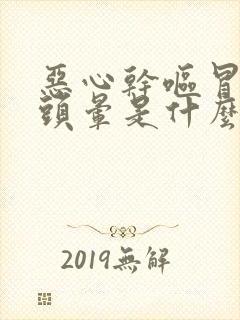 惡心幹嘔冒
頭暈是什麼
2019無解